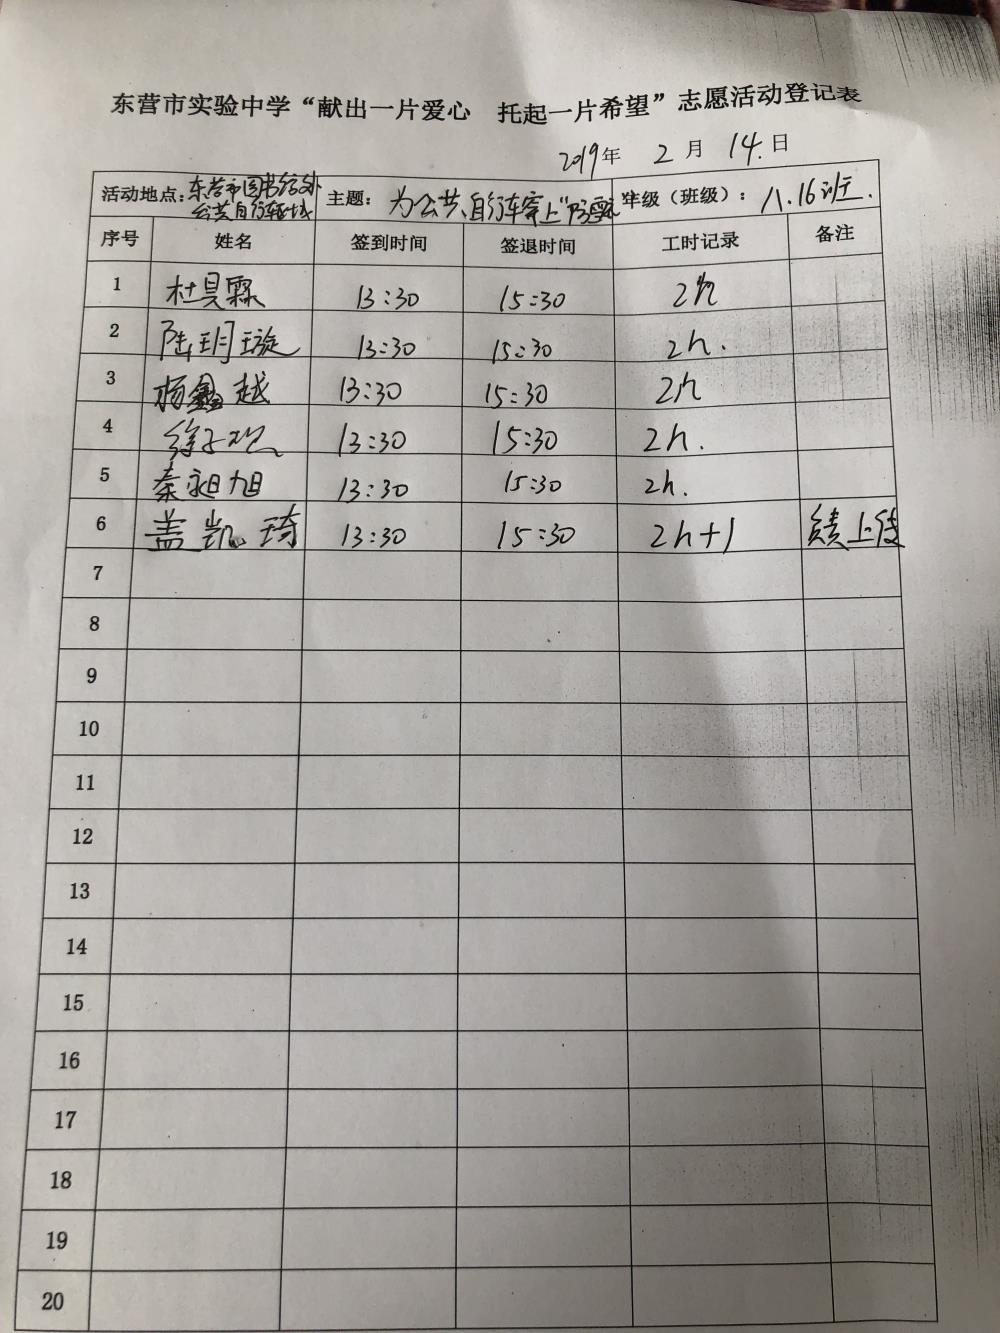 东营市实验中学“献出一片爱心 托起一片希望”志愿活动登记表
2019年 2 月 14.日
活动地点：东营市图书馆外 公共自行车 主题：为公共自行车穿上“ 年级（班级）：八.16班.
序号 姓名 签到时间 签退时间 工时记录 备注
1 杜昊霖 13:30 15:30 2h
2 陆玥璇 13:30 15:30 2h.
3 杨鑫越 13:30 15:30 2h
4 徐子 13:30 15:30 2h.
5 秦昶旭 13:30 15:30 2h.
6 盖凯琦 13:30 15:30 2h+1 负责上传
7
8
9
10
11
12
13
14
15
16
17
18
19
20